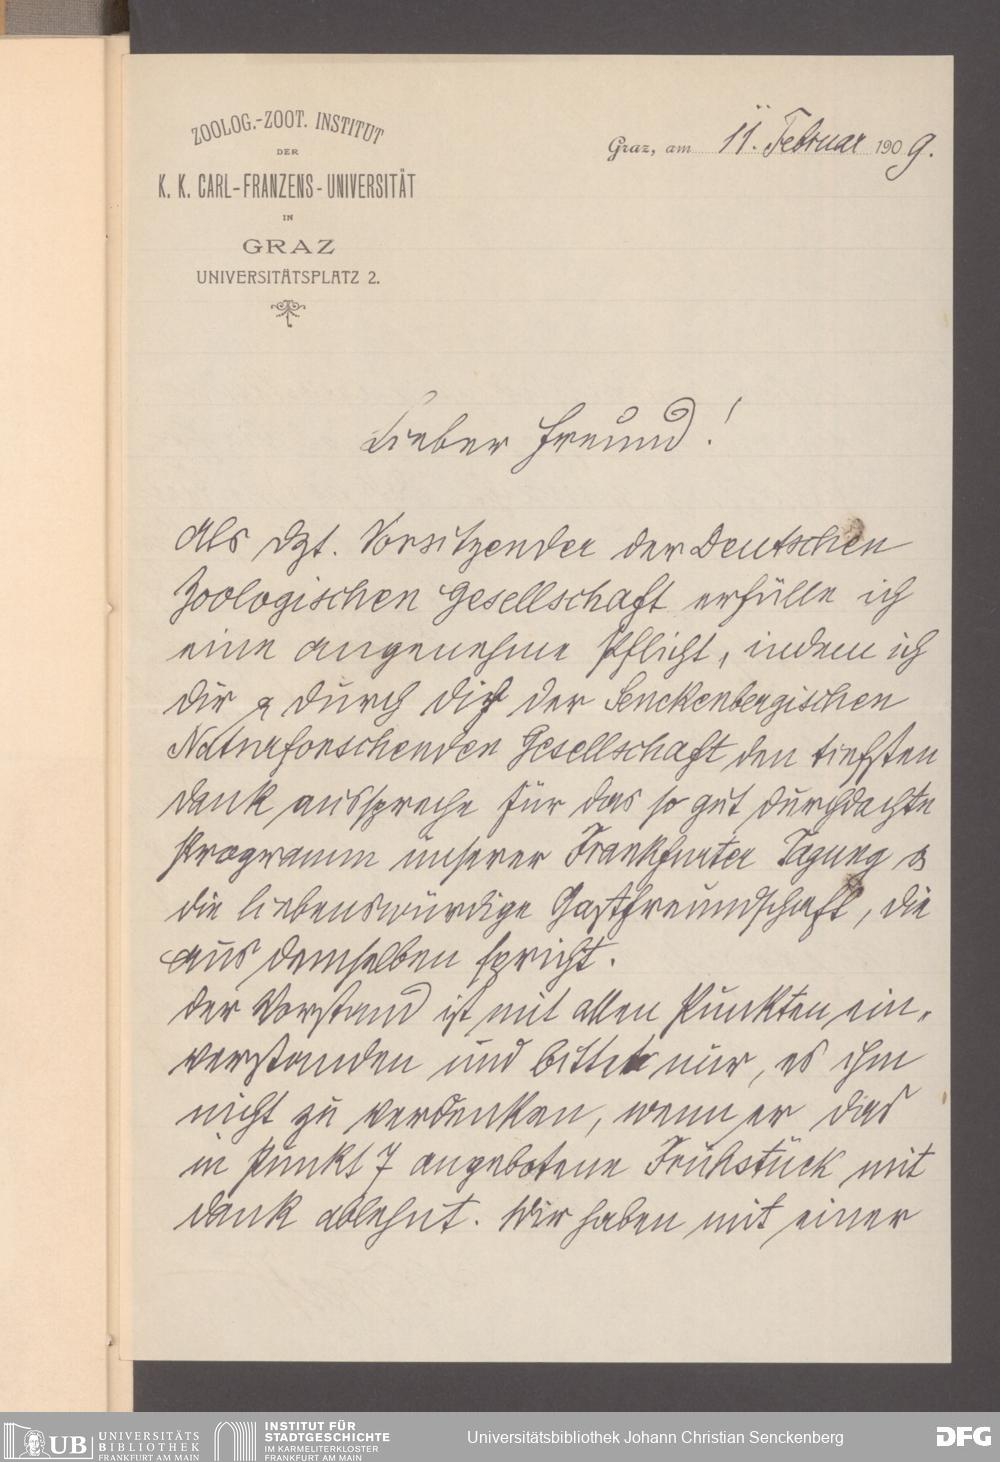 ZOOLOG.-ZOOT. INSTITUT
DER
K. K. CARL-FRANZENS-UNIVERSITÄT
IN
GRAZ
UNIVERSITÄTSPLATZ 2.
Graz, am 11. Februar 1909.
Lieber Freund!
Als dzt. Vorsitzender der Deutschen
Zoologischen Gesellschaft erfülle ich
eine angenehme Pflicht, indem ich
Dir & durch Dich der Senckenbergischen
Naturforschenden Gesellschaft den tiefsten
Dank ausspreche für das so gut durchdachte
Programm unserer Frankfurter Tagung &
die liebenswürdige Gastfreundschaft, die
aus demselben spricht.
Der Vorstand ist mit allen Punkten ein-
verstanden und bittet nur, es ihm
nicht zu verdenken, wenn er das
in Punkt 7 angebotene Frühstück mit
Dank ablehnt. Wir haben mit einer
UB UNIVERSITÄTS
BIBLIOTHEK
FRANKFURT AM MAIN
INSTITUT FÜR
STADTGESCHICHTE
IM KARMELITERKLOSTER
FRANKFURT AM MAIN
Universitätsbibliothek Johann Christian Senckenberg
DFG